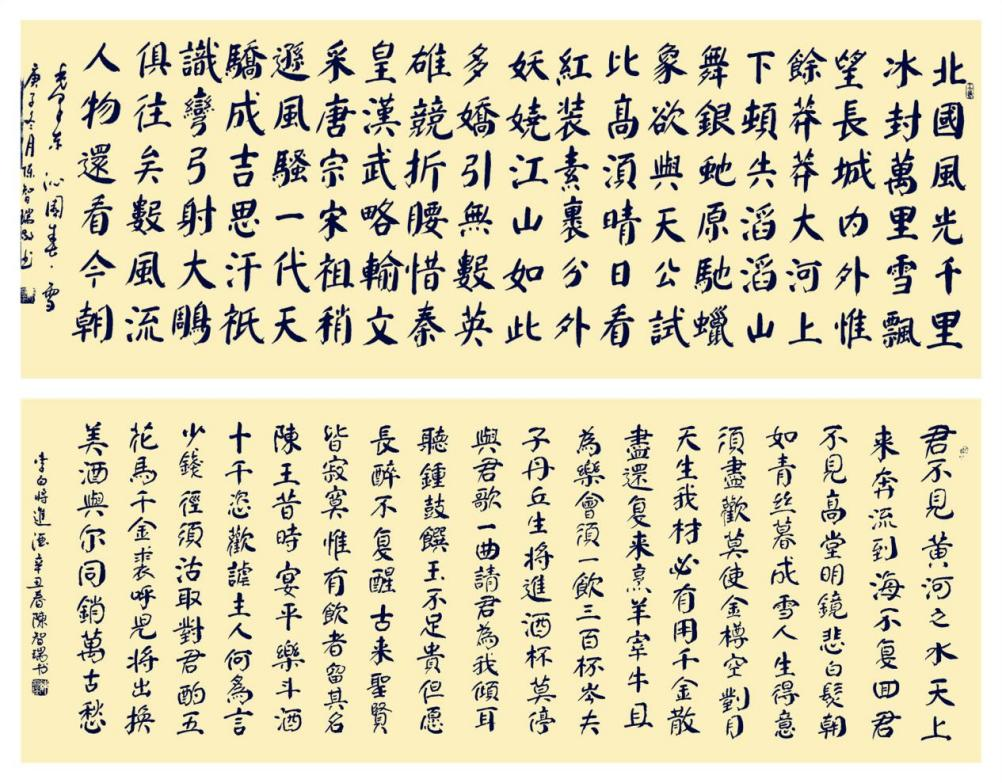 北國風光千里
冰封萬里雪飄
望長城内外惟
餘莽莽大河上
下頓失滔滔山
舞銀虵原馳蠟
象欲與天公試
比高須晴日看
紅装素裹分外
妖嬈江山如此
多嬌引無數英
雄競折腰惜秦
皇漢武略輸文
采唐宗宋祖稍
遜風騷一代天
驕成吉思汗衹
識彎弓射大鵰
俱往矣數風流
人物還看今朝
毛澤东 沁園春·雪
庚子冬月陈智瑞书
君不見黄河之水天上
来奔流到海不复回君
不見高堂明鏡悲白髮朝
如青丝暮成雪人生得意
須盡歡莫使金樽空對月
天生我材必有用千金散
盡還复来烹羊宰牛且
為樂會須一飲三百杯岑夫
子丹丘生将進酒杯莫停
與君歌一曲請君為我傾耳
聽鍾鼓饌玉不足貴但愿
長醉不复醒古来聖賢
皆寂寞惟有飲者留其名
陳王昔時宴平樂斗酒
十千恣歡謔主人何為言
少錢徑須沽取對君酌五
花馬千金裘呼児将出換
美酒與尔同銷萬古愁
李白将進酒辛丑春陳智瑞书